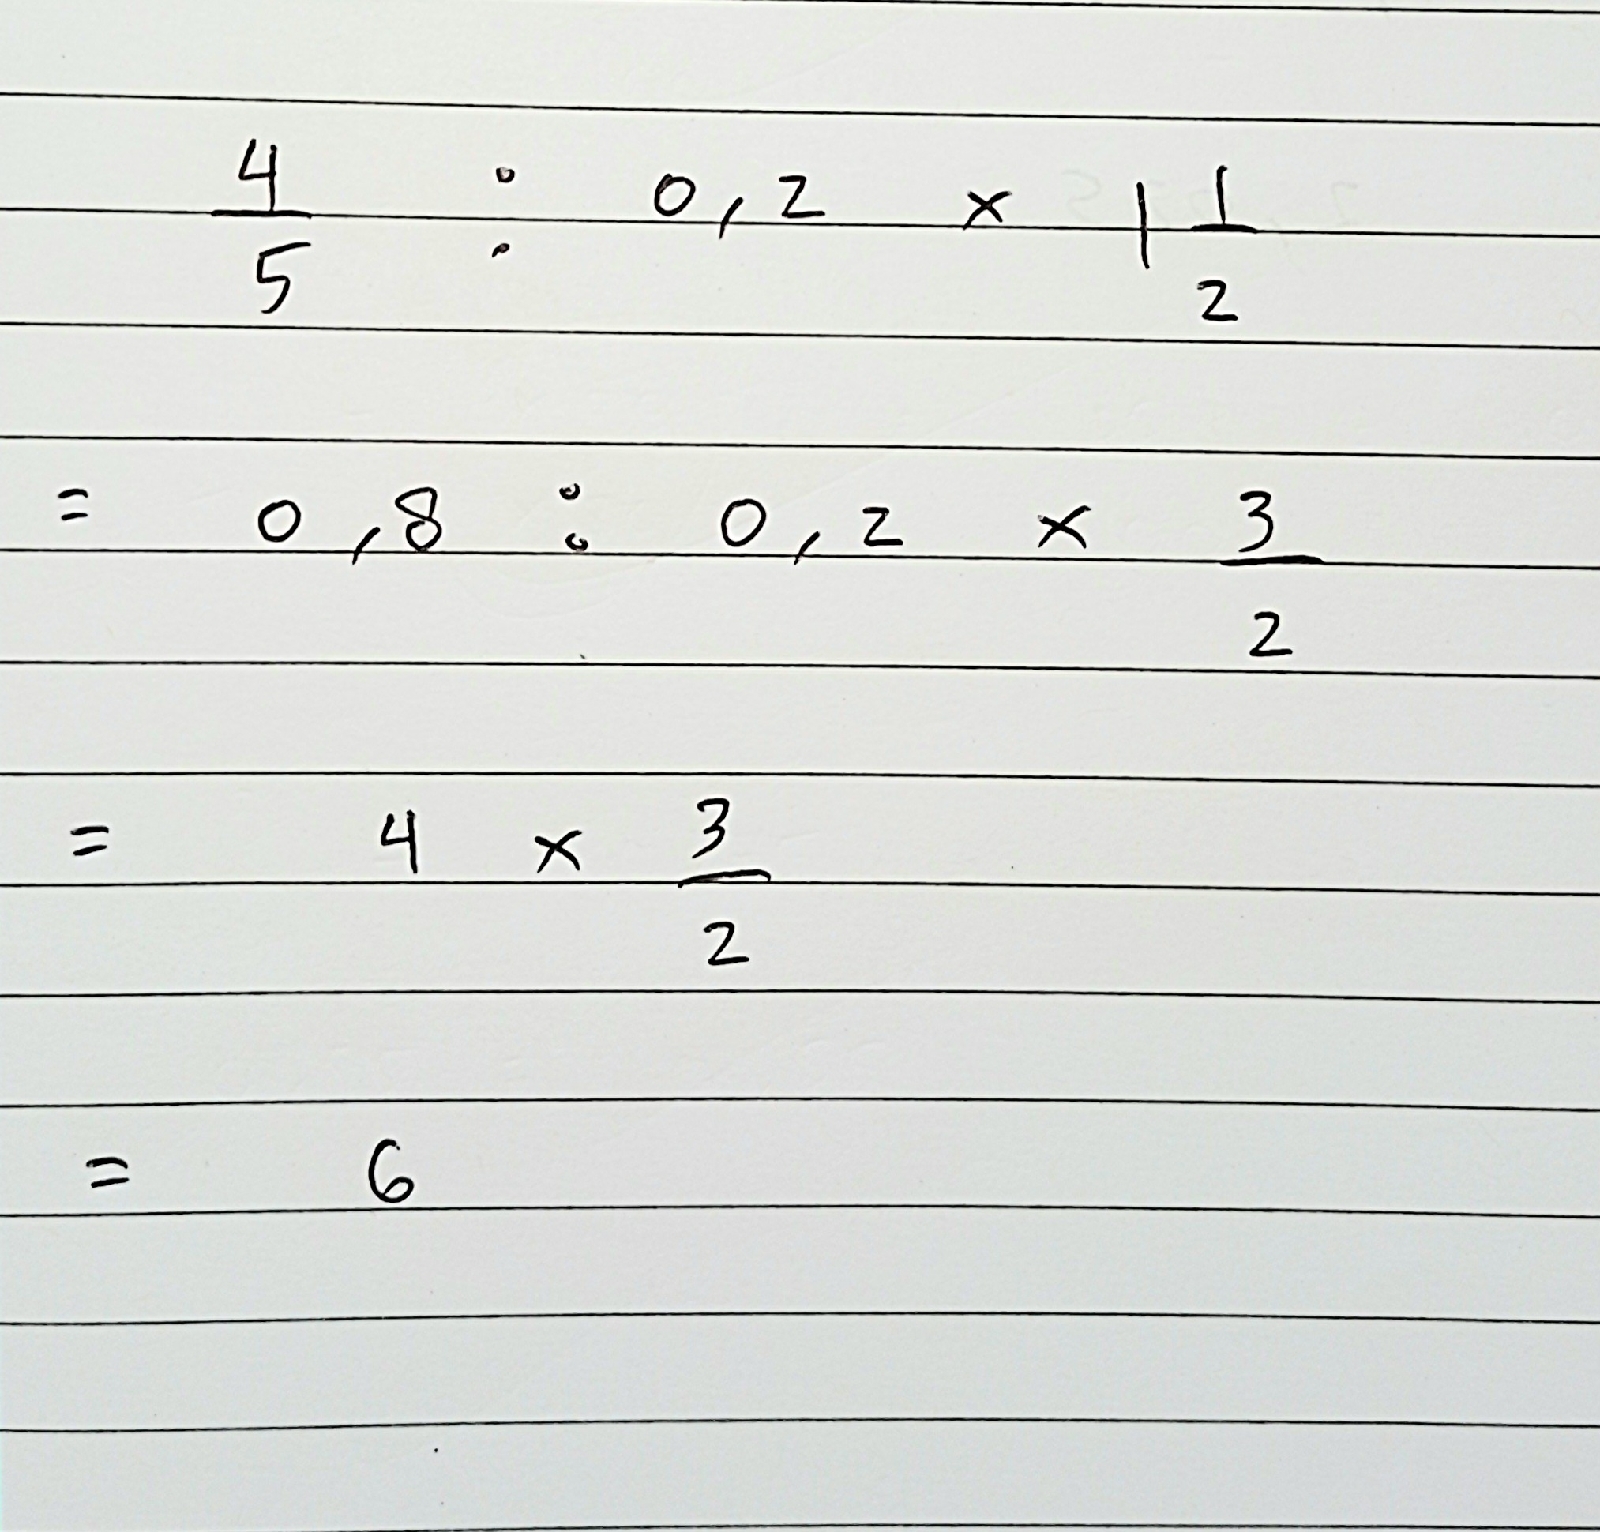 4/5 : 0,2 × 1 1/2
= 0,8 : 0,2 × 3/2
= 4 × 3/2
= 6